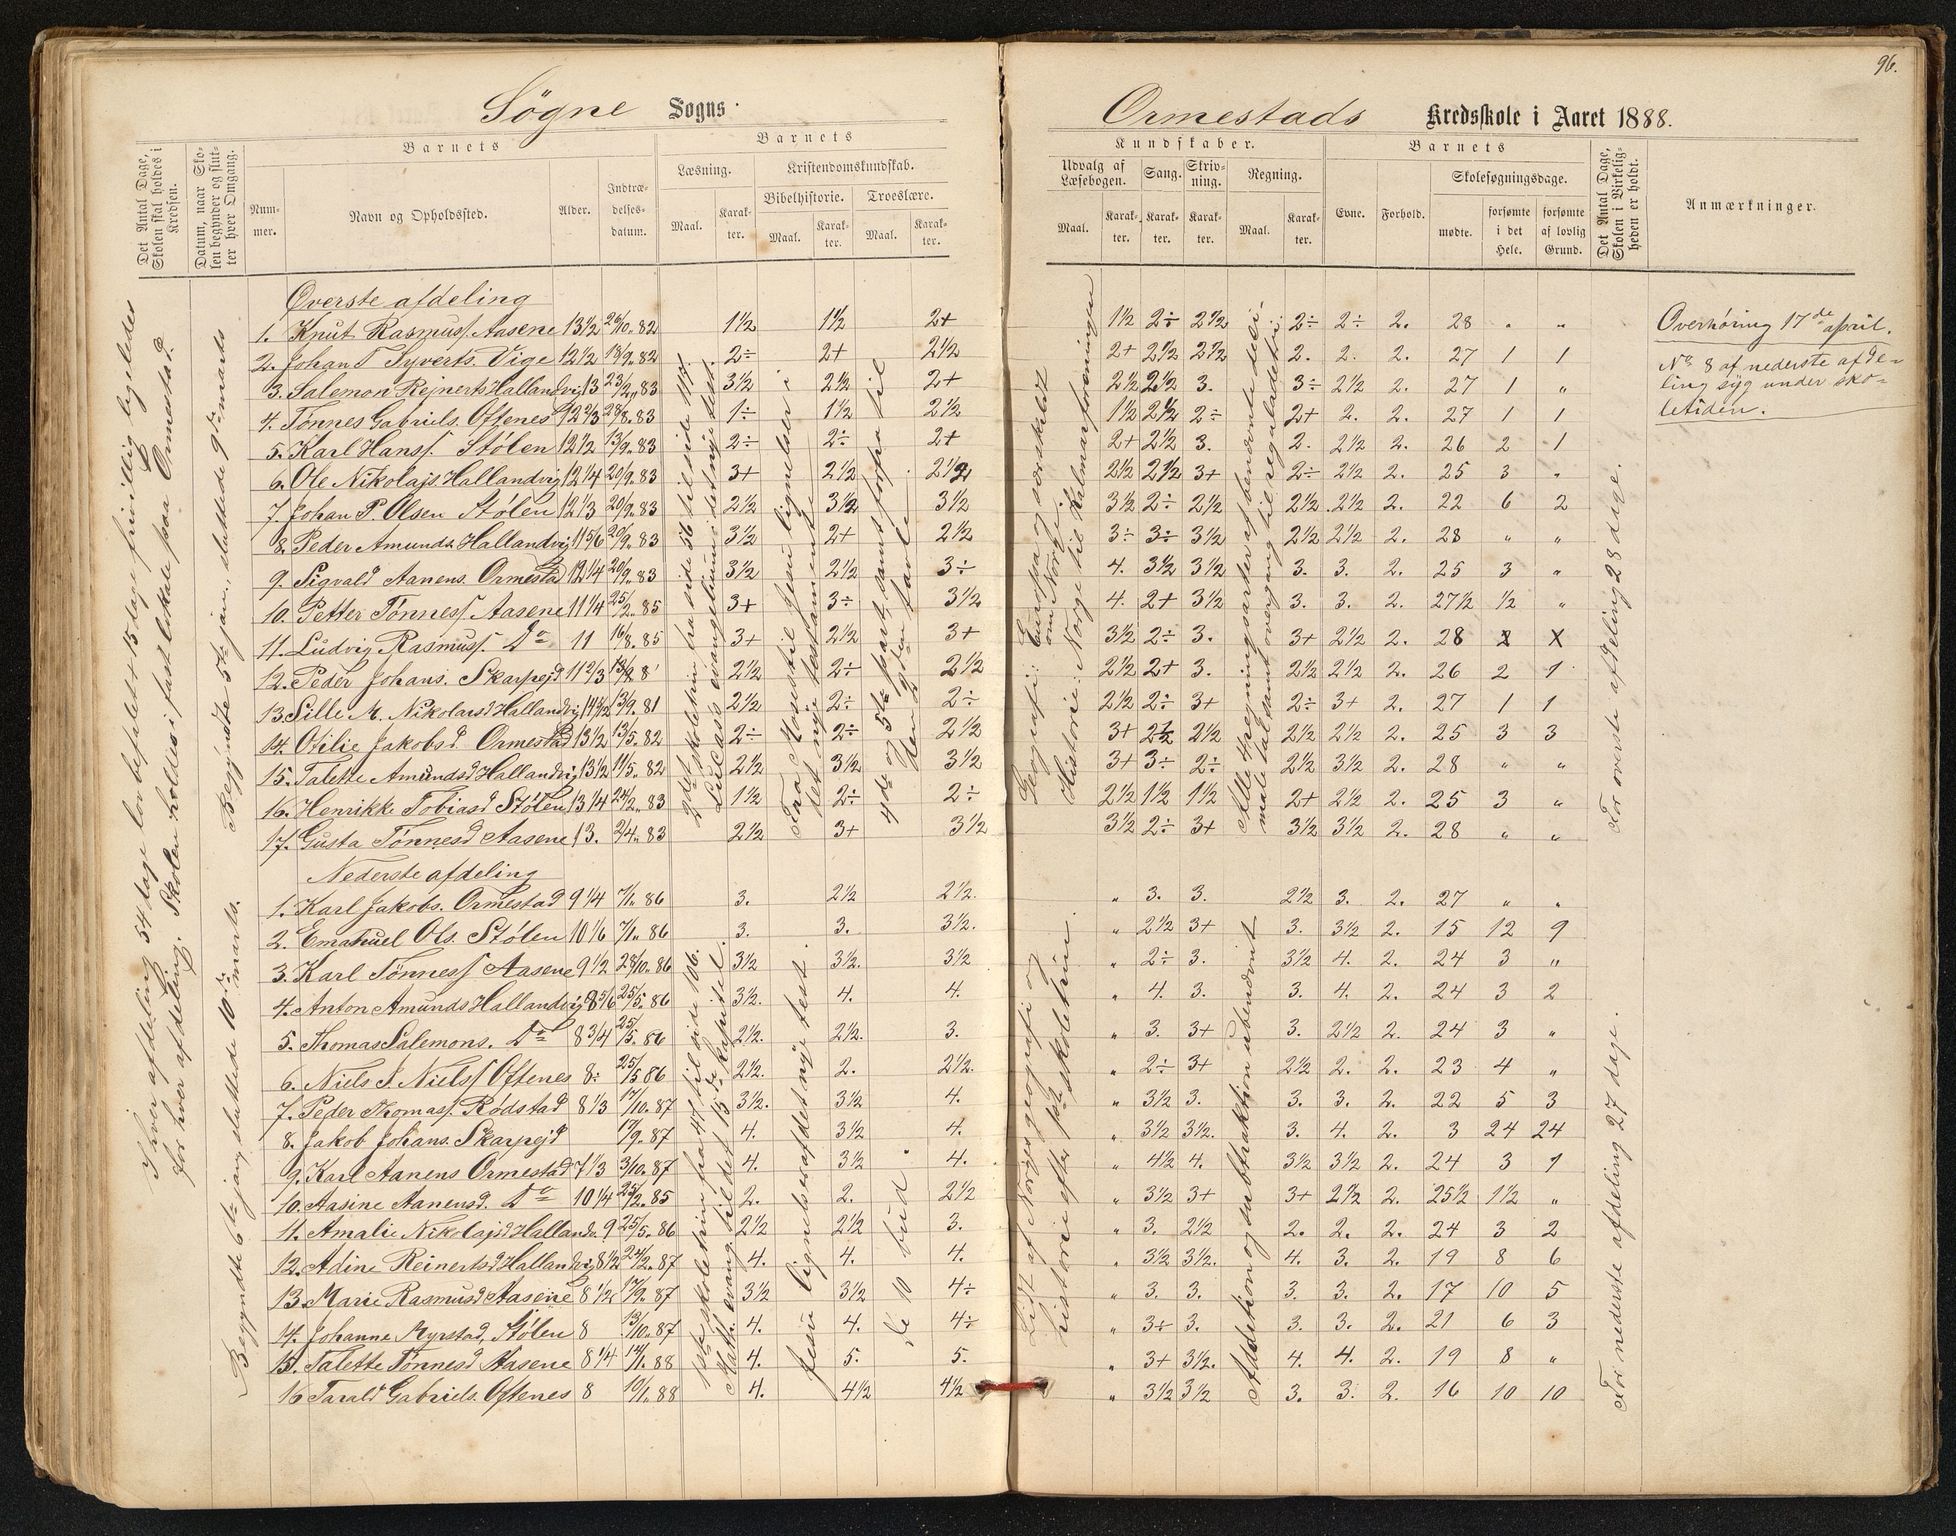 96.
Søgne Sogns
Ormestads Kredsskole i Aaret 1888.
Det Antal Dage, Skolen skal holdes i Kredsen.
Datum, naar Skolen begynder og slutter hver Omgang.
Barnets
Nummer.
Navn og Opholdssted.
Alder.
Indtrædelsesdatum.
Barnets
Læsning.
Maal.
Karakter.
Kristendomskundskab.
Bibelhistorie.
Maal.
Karakter.
Troeslære.
Maal.
Karakter.
Kundskaber.
Udvalg af Læsebogen.
Maal.
Karakter.
Sang.
Karakter.
Skrivning.
Karakter.
Regning.
Maal.
Karakter.
Barnets
Evne.
Forhold.
Skolesøgningsdage.
mødte.
forsømte i det Hele.
forsømte af lovlig Grund.
Det Antal Dage, Skolen i Virkeligheden er holdt.
Anmærkninger.
Øverste afdeling
1. Knut Rasmuss. Aasene 13½ 26/10. 82 1½ 1½ 2+ 1½ 2÷ 2½ 2÷ 2÷ 2. 28 " "
2. Johan T Tyverts. Vige 12½ 18/9. 82 2÷ 2+ 2½ 2+ 2½ 2½ 2. 2. 2. 27 1 1
3. Salemon Rejnerts Hallandvig 13 23/2. 83 3½ 2½ 2+ 2½ 2½ 3. 3÷ 2½ 2. 27 1 "
4. Tønnes Gabriels. Oftenes 12 2/3 28/8. 83 1÷ 1½ 2½ 1½ 2½ 2÷ 2+ 2. 2. 27 1 1
5. Karl Hanss. Stølen 12½ 13/9. 83 2÷ 2÷ 2+ 2+ 2½ 3. 2. 2½ 2. 26 2 1
6. Ole Nikolajs. Hallandvig 12 1/4 20/9. 83 3+ 2½ 2½ 2½ 2½ 3+ 2÷ 2½ 2. 25 3 "
7. Johan P. Olsen Stølen 12 1/3 20/9. 83 2½ 3½ 3½ 3½ 2÷ 2½ 2½ 2½ 2. 22 6 2
8. Peder Amunds. Hallandvig 11 5/6 20/9. 83 3½ 2+ 2½ 3÷ 3÷ 3½ 2½ 2½ 2. 28 " "
9. Sigvald Aanens. Ormestad 12 1/4 20/9. 83 3½ 2½ 3÷ 4. 3½ 3½ 3. 3. 2. 25 3 "
10. Petter Tønness. Aasene 11 1/4 25/2. 85 3+ 3÷ 3½ 4. 2+ 3½ 3. 3. 2. 27½ ½ "
11. Ludvig Rasmuss. Do 11 16/8. 85 3+ 2½ 3+ 3½ 2÷ 3. 3+ 2½ 2. 28
12. Peder Johans. Skarpejd 11 2/3 13/8. 8 2½ 2÷ 2½ 2½ 2+ 3. 2½ 2½ 2. 26 2 1
13. Sille M. Nikolaisd Hallandvig 13/9. 81 2½ 2÷ 2÷ 2½ 2÷ 3+ 2÷ 3+ 2. 27 1 1
14. Otilie Jakobsd. Ormestad 13½ 13/5. 82 2÷ 2÷ 2½ 3+ 2½ 2½ 2½ 2½ 2. 25 3 3
15. Talette Amundsd Hallandvig 13½ 11/5. 82 2½ 3½ 3½ 3+ 3÷ 2÷ 2½ 3½ 2. 28 " "
16. Henrikke Tobiasd Stølen 13 1/4 24/2. 83 1½ 2÷ 2÷ 2½ 1½ 1½ 2+ 2½ 2. 25 3 "
17. Gusta Tønnesd Aasene 13. 2/4. 83 2½ 3+ 3½ 3½ 2÷ 3+ 3½ 3½ 2. 28 " "
Nederste afdeling
1. Karl Jakobs. Ormestad 9 1/4 7/1. 86 3. 2½ 2½. " 3. 3. 2½ 3. 2. 27 " "
2. Emanuel Ols. Stølen 10 1/6 7/1. 86 3. 3. 3½. " 2½ 3+ 3. 3½ 2. 15 12 9
3. Karl Tønness Aasene 9½ 28/10. 86 3½ 3½. 3½ " 2÷ 3. 3½ 4. 2. 24 3 "
4. Anton Amunds Hallandvig 8 5/6 25/5. 86 3½. 4. 4. " 4. 3. 3. 4. 2. 24 3 2
5. Thomas Salemons. Do 8 3/4 25/5. 86 2½. 2½. 3. " 3. 3+ 3. 2½ 2. 24 3 "
6. Niels S. Nielss Oftenes 8÷ 25/5 86 2½. 2. 2½. " 2÷ 3+ 2½ 2. 2. 23 4 "
7. Peder Thomass. Rødstad 8 1/3 17/10. 87 3½. 3½ 4. " 3½ 3. 3. 3. 2. 22 5 3
8. Jakob Johans. Skarpejd 17/9. 87 4. 3½ 4. " 3½ 3½. 3. 4. 2. 3 24 24
9. Karl Aanens Ormestad 7 1/3 3/10. 87 4. 3½ 4. " 4½ 4. 3½ 3½ 2. 24 3 1
10. Aasine Aanensd. Do 10 1/4 25/2. 85 2. 2. 2½ " 3½ 3+ 3+ 2½ 2. 25½ 1½ "
11. Amalie Nikolajsd Hallandv. 9 25/5. 86 2½ 2½ 3. " 3. 2½ 2. 2. 2. 24 3 2
12. Adine Reinertsd Hallandvig 8½ 24/2. 87 4. 4. 4. " 3½ 3½. 4. 3. 2. 19 8 6
13. Marie Rasmusd Aasene 8½ 17/9. 87 3½ 3½ 4÷ " 3. 3. 3. 3. 2. 17 10 5
14. Johanne Myrstad, Stølen 8 13/10. 87 4. 4. 4÷ " 3+ 3. 3. 3. 2. 21 6 3
15. Talette Tønnesd Aasene 8 1/4 14/1. 88 4. 5. 5. " 3+ 3½. 4. 4. 2. 19 8 "
16 Tarald Gabriels. Oftenes 8 10/1. 88 4. 4½ 4½ " 3½ 3½ 3. 3. 2. 16 10 10
I hver afdeling 54 dage lov befalet + 15 dage frivillig ligeledes
for hver afdeling. Skolen holdtes i fast lokale paa Ormestad.
Begyndte 5te jan., sluttede 9de marts
Begyndte 6te jan., sluttede 10de marts.
2det skoletrin fra side 56 til side 117.
Lucas's evangelium i det nye test.
Fra Moses til Jesu lignelser i
det nye testamente
4de og 5te part, samt forfra til
den 9den tavle
Geografi: Europa og særskildt om Norge.
Historie: Norge til Kalmarforeningen
Alle 4 regningsarter af ubenævnte hele
tal samt overgang til regulaldetri.
For øverste afdeling 28 dage.
1ste skoletrin fra 47 til side 106.
Matth. evang. til det 15de kapitel.
Jesu lignelser af det nye test.
de 10 bud.
Lidt af Norges geografi og
historie efter 1ste skoletrin.
Addition og subtraktion ubenævnt
For nederste afdeling 27 dage.
Overhøring 17de april.
No 8 af nederste afde-
ling syg under sko-
letiden.